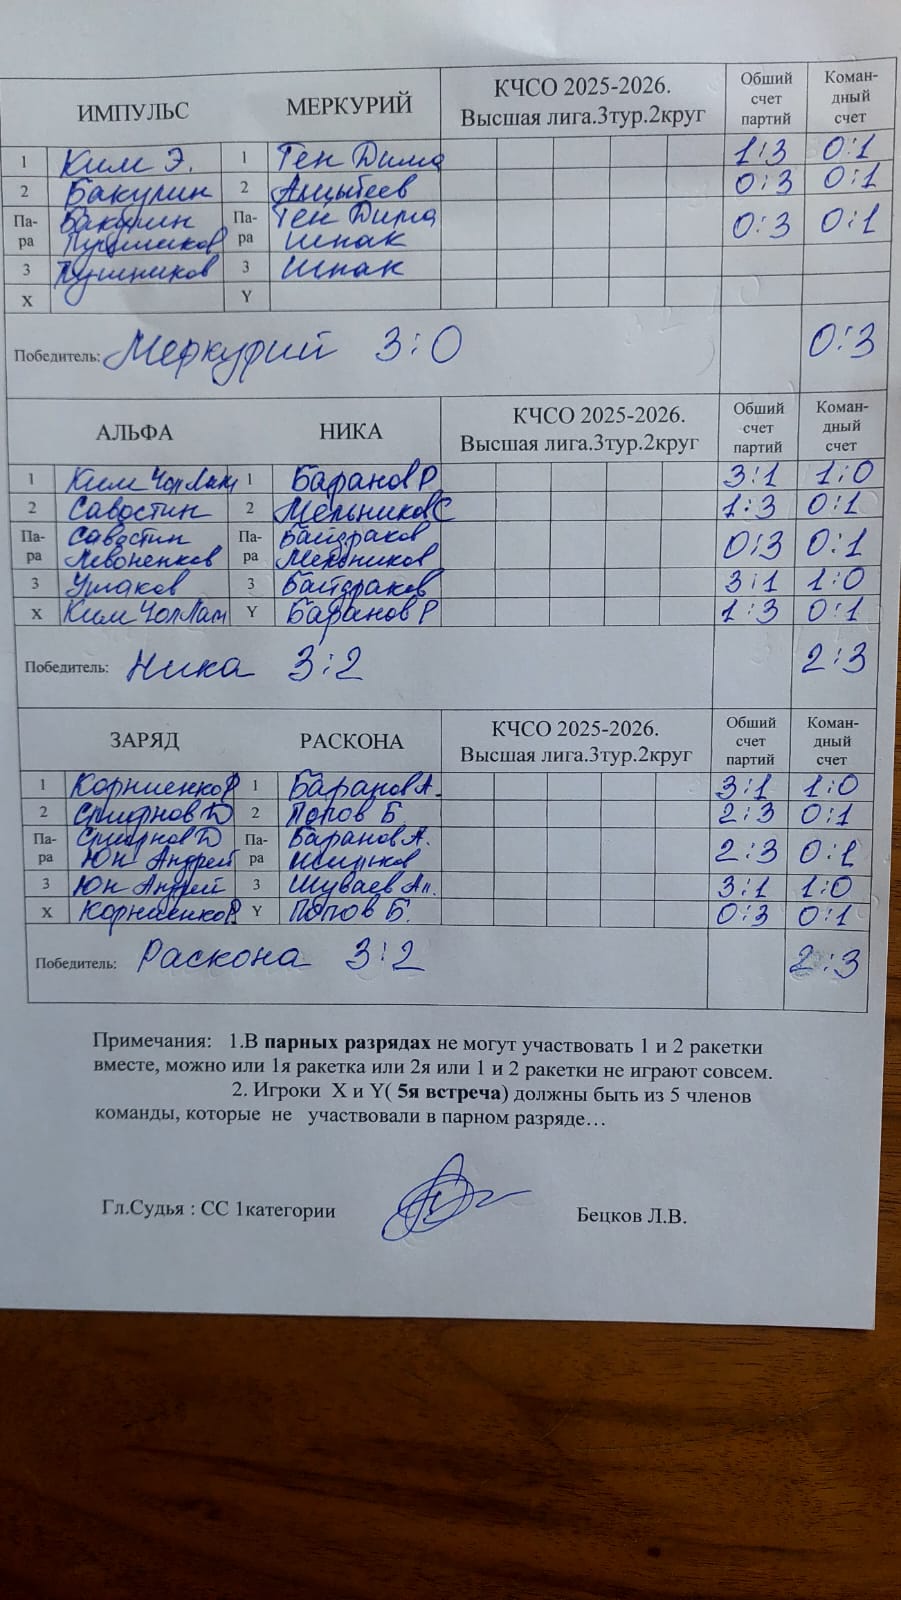 ИМПУЛЬС МЕРКУРИЙ КЧСО 2025-2026. Высшая лига.3тур.2круг Обший счет партий Коман-дный счет
1 Ким Э. 1 Тен Дима 1:3 0:1
2 Бакулин 2 0:3 0:1
Па-ра Бакулин Па-ра Тен Дима 0:3 0:1
Шпак
3 3 Шпак
X Y
Победитель: Меркурий 3:0 0:3
АЛЬФА НИКА КЧСО 2025-2026. Высшая лига.3тур.2круг Обший счет партий Коман-дный счет
1 Ким Чол Лам 1 Баранов Р 3:1 1:0
2 Савостин 2 Мельников С 1:3 0:1
Па-ра Савостин Па-ра Байдраков 0:3 0:1
Левоненков Мельников
3 Ушаков 3 Байдраков 3:1 1:0
X Ким Чол Лам Y Баранов Р 1:3 0:1
Победитель: Ника 3:2 2:3
ЗАРЯД РАСКОНА КЧСО 2025-2026. Высшая лига.3тур.2круг Обший счет партий Коман-дный счет
1 Корниенко Р 1 Баранов А. 3:1 1:0
2 Смирнов Д 2 Попов Б. 2:3 0:1
Па-ра Смирнов Д Па-ра Баранов А. 2:3 0:1
Юн Андрей
3 Юн Андрей 3 Шуваев Ал. 3:1 1:0
X Корниенко Р. Y Попов Б. 0:3 0:1
Победитель: Раскона 3:2 2:3
Примечания: 1.В парных разрядах не могут участвовать 1 и 2 ракетки
вместе, можно или 1я ракетка или 2я или 1 и 2 ракетки не играют совсем.
2. Игроки X и Y( 5я встреча) должны быть из 5 членов
команды, которые не участвовали в парном разряде…
Гл.Судья : СС 1категории Бецков Л.В.